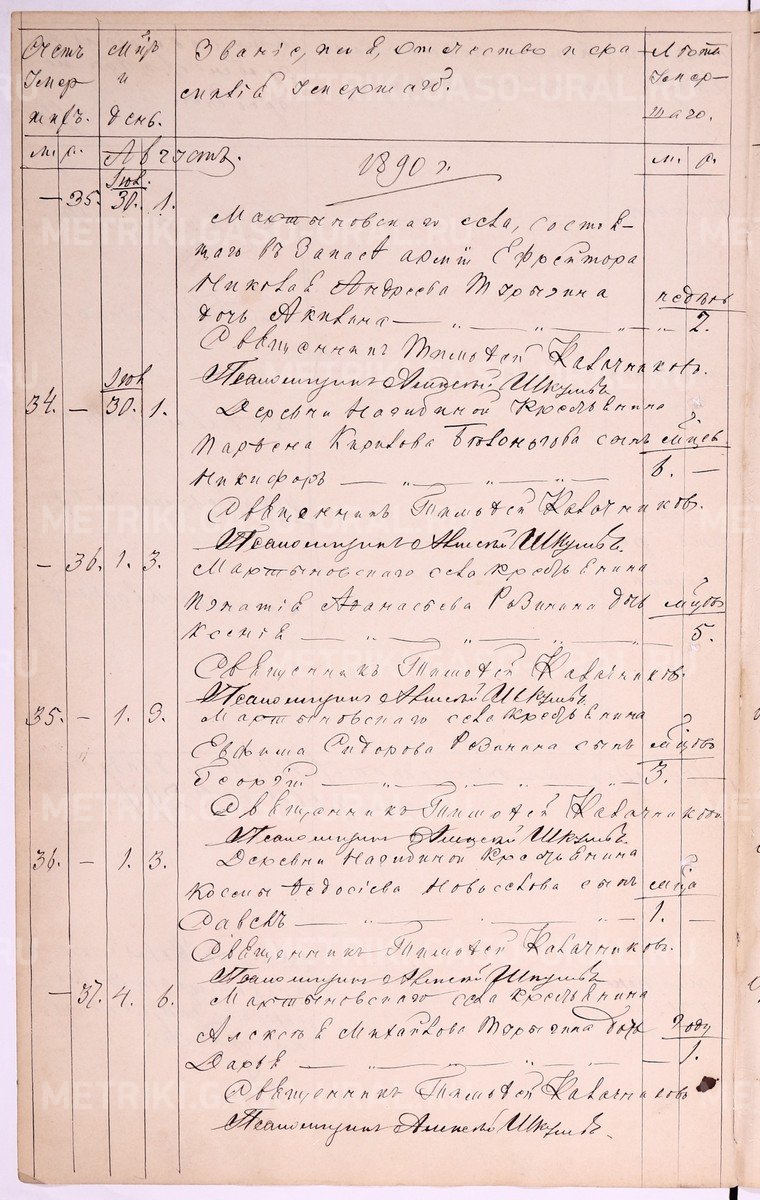 Счетъ Мѣс. Званіе, имя, отчество и фа- Лѣта
умер и милія умершаго. умер-
шихъ. день. шаго.
м. ж. Августъ. 1890 г. м. ж.
Іюл.
— 35. 30. 1.
Мартыновскаго села, состоя-
щаго въ запасѣ арміи Ефрейтора
Николая Андреева Тырыгина недѣль
дочь Акилина — „ — „ — „ — „ 2.
Священникъ Тимофей Калачниковъ.
Псаломщикъ Алексѣй Шкулевъ
Іюл
34. — 30. 1. Деревни Нагибиной крестьянина
Парѳена Кирилова сынъ мѣсяц.
Никифоръ — „ — „ — 6. —
Священникъ Тимофей Калачниковъ.
Псаломщикъ Алексѣй Шкулевъ.
— 36. 1. 3. Мартыновскаго села крестьянина
Игнатія Аѳанасьева Розинина дочь мѣсяцовъ
Ксенія — „ — „ — „ 5.
Священникъ Тимофей Калачниковъ.
Псаломщикъ Алексѣй Шкулевъ.
35. — 1. 3. Мартыновскаго села крестьянина
Евфима Сидорова Розинина сынъ мѣсяцовъ
Георгій — „ — „ — „ — 3. —
Священникъ Тимофей Калачниковъ
Псаломщикъ Алексѣй Шкулевъ.
36. — 1. 3. Деревни Нагибиной крестьянина
Космы Ѳедосіева Новоселова сынъ мѣсяца
Савелъ — „ — „ — „ — 1. —
Священникъ Тимофей Калачниковъ.
Псаломщикъ Алексѣй Шкулевъ
— 37. 4. 6. Мартыновскаго села крестьянина
Алексѣя Михайлова Тырыгина дочь году
Дарья — „ — „ — „ — 1.
Священникъ Тимофей Калачниковъ
Псаломщикъ Алексѣй Шкулевъ.